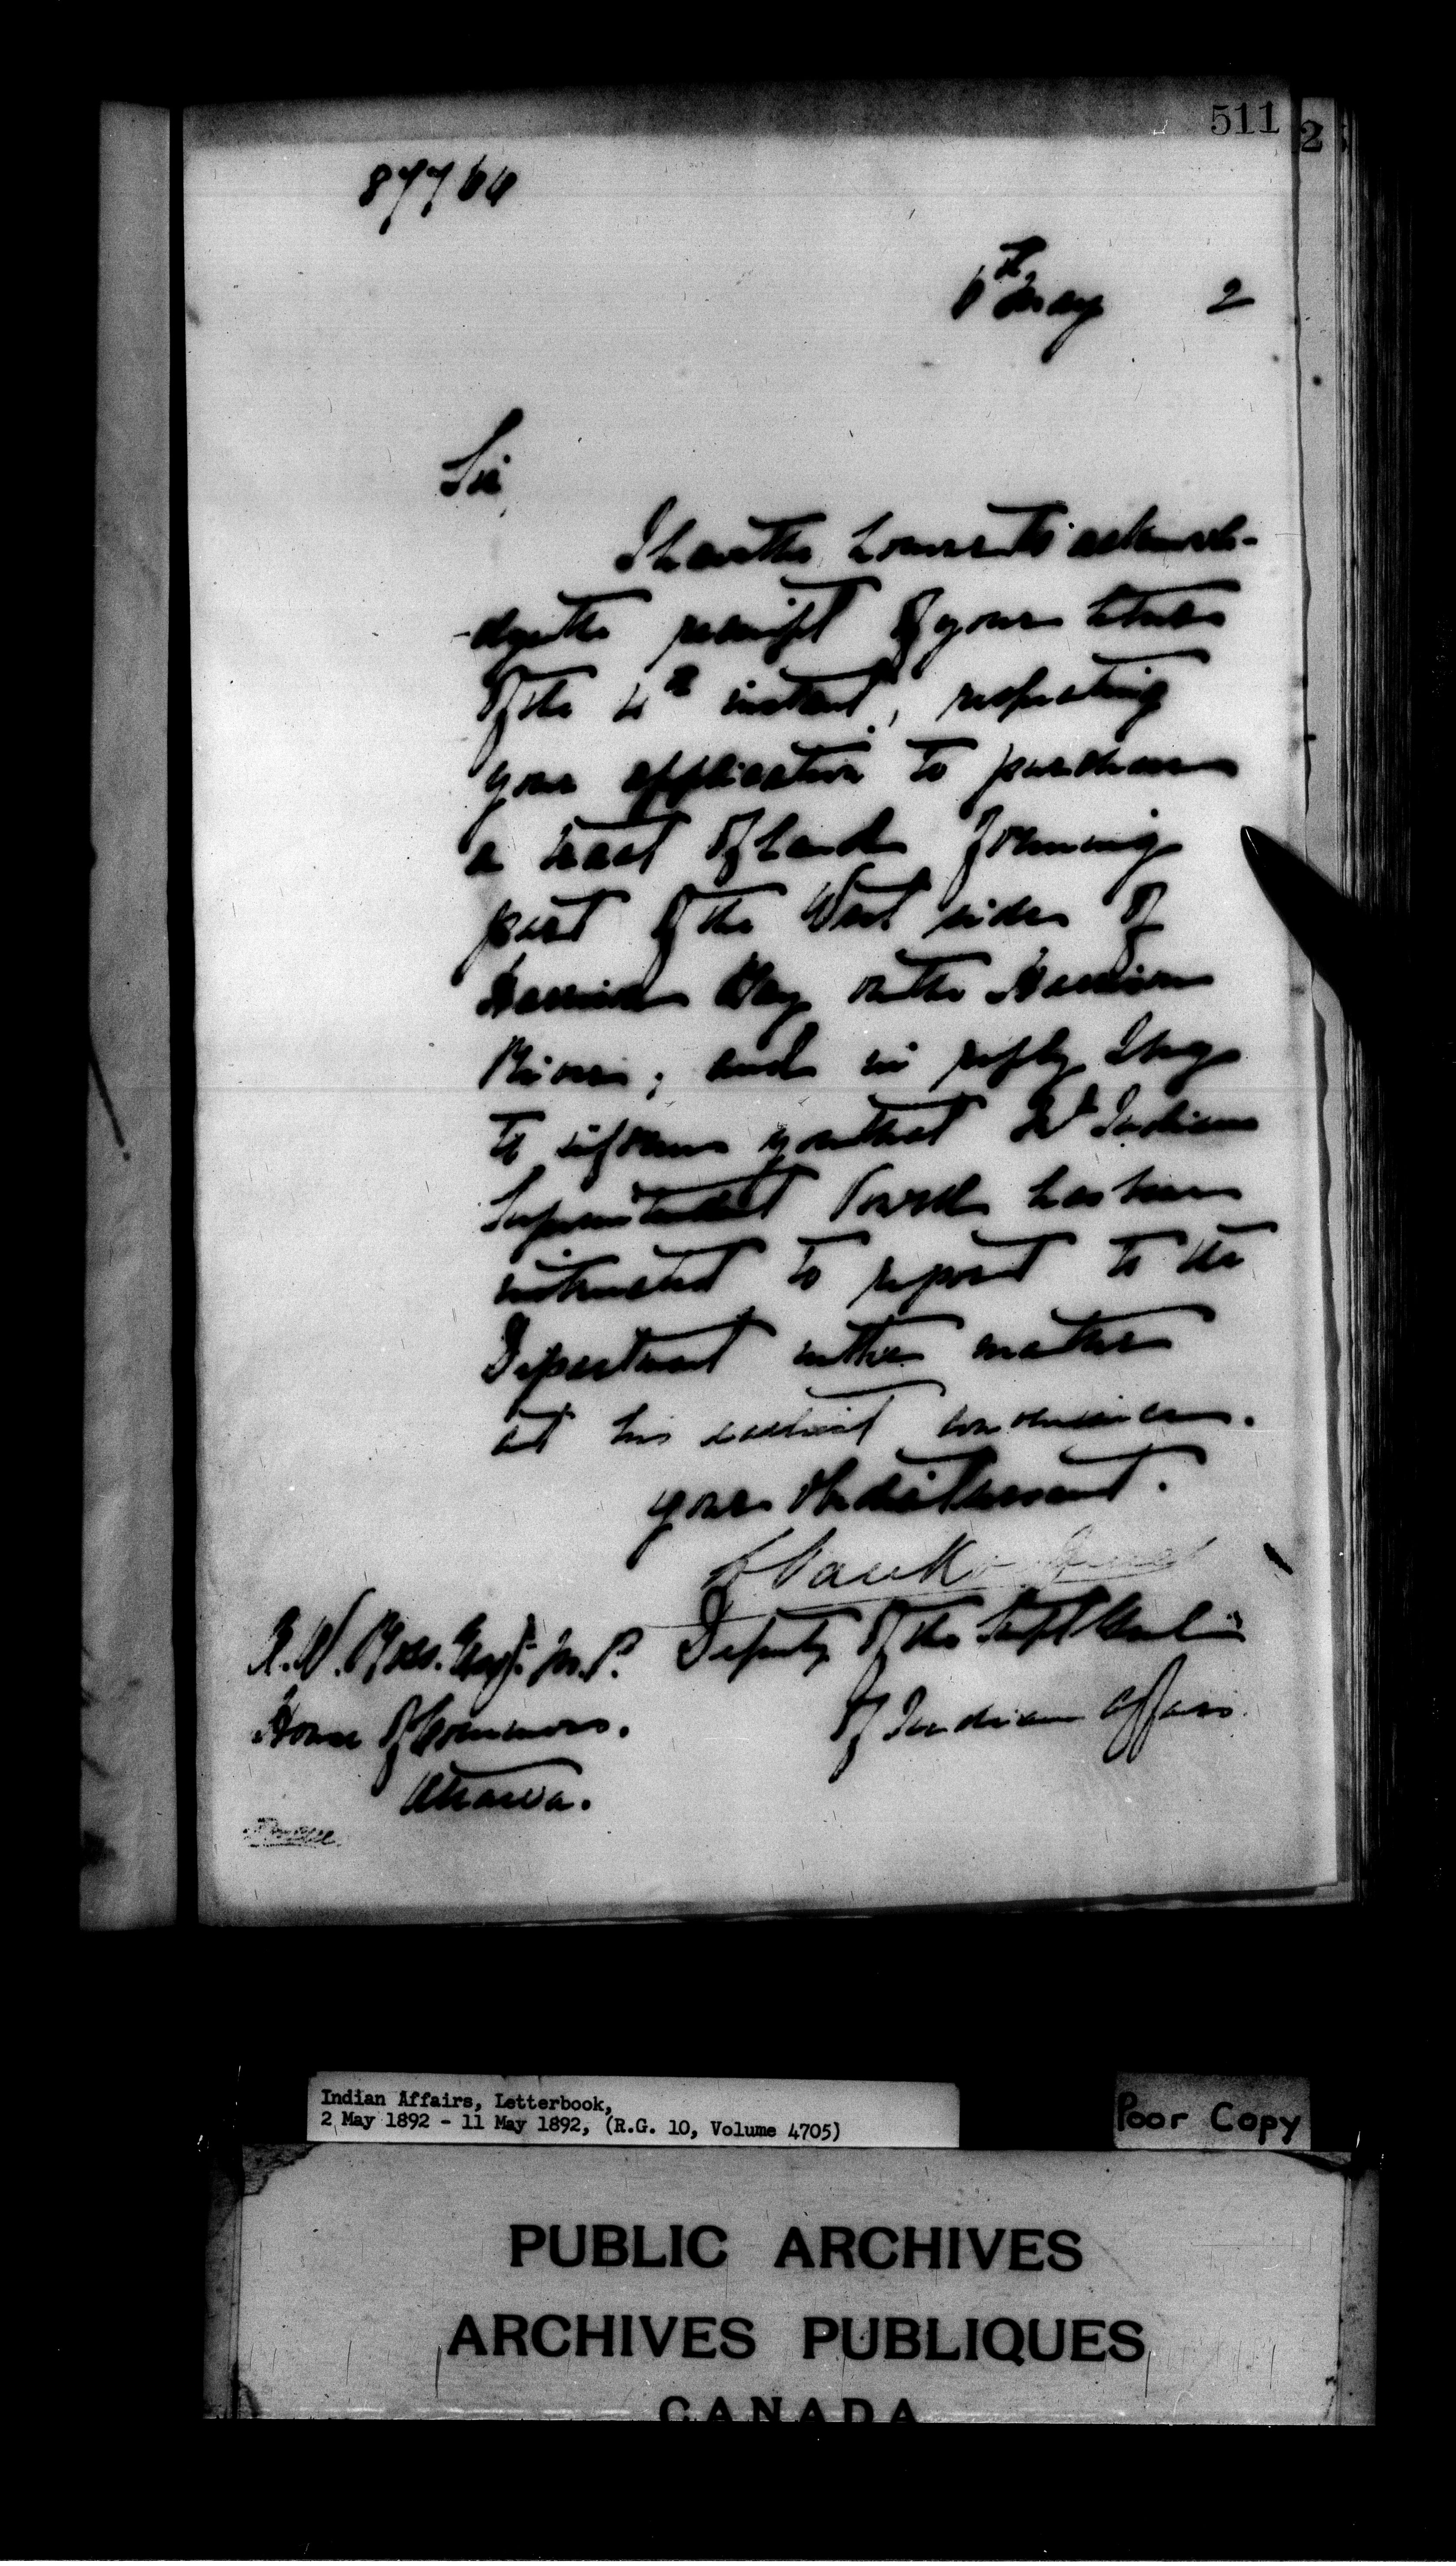 511
2
87766
6th May 2
Sir
I have the honour to acknowle-
-dge the receipt of your letter
of the 4th instant, respecting
your application to purchase
a tract of land forming
part of the West side of
Harrison Bay on the Harrison
River; and in reply I beg
to inform you that Indian
Superintendent Powell has been
instructed to report to the
Department in the matter
at his earliest convenience.
your obedient servant.
L Vankoughnet
Deputy of the Supt Genl
of Indian Affairs.
Ross. Esq. M.P.
House of Commons.
Ottawa.
Indian Affairs, Letterbook,
2 May 1892 - 11 May 1892, (R.G. 10, Volume 4705)
Poor Copy
PUBLIC ARCHIVES
ARCHIVES PUBLIQUES
CANADA